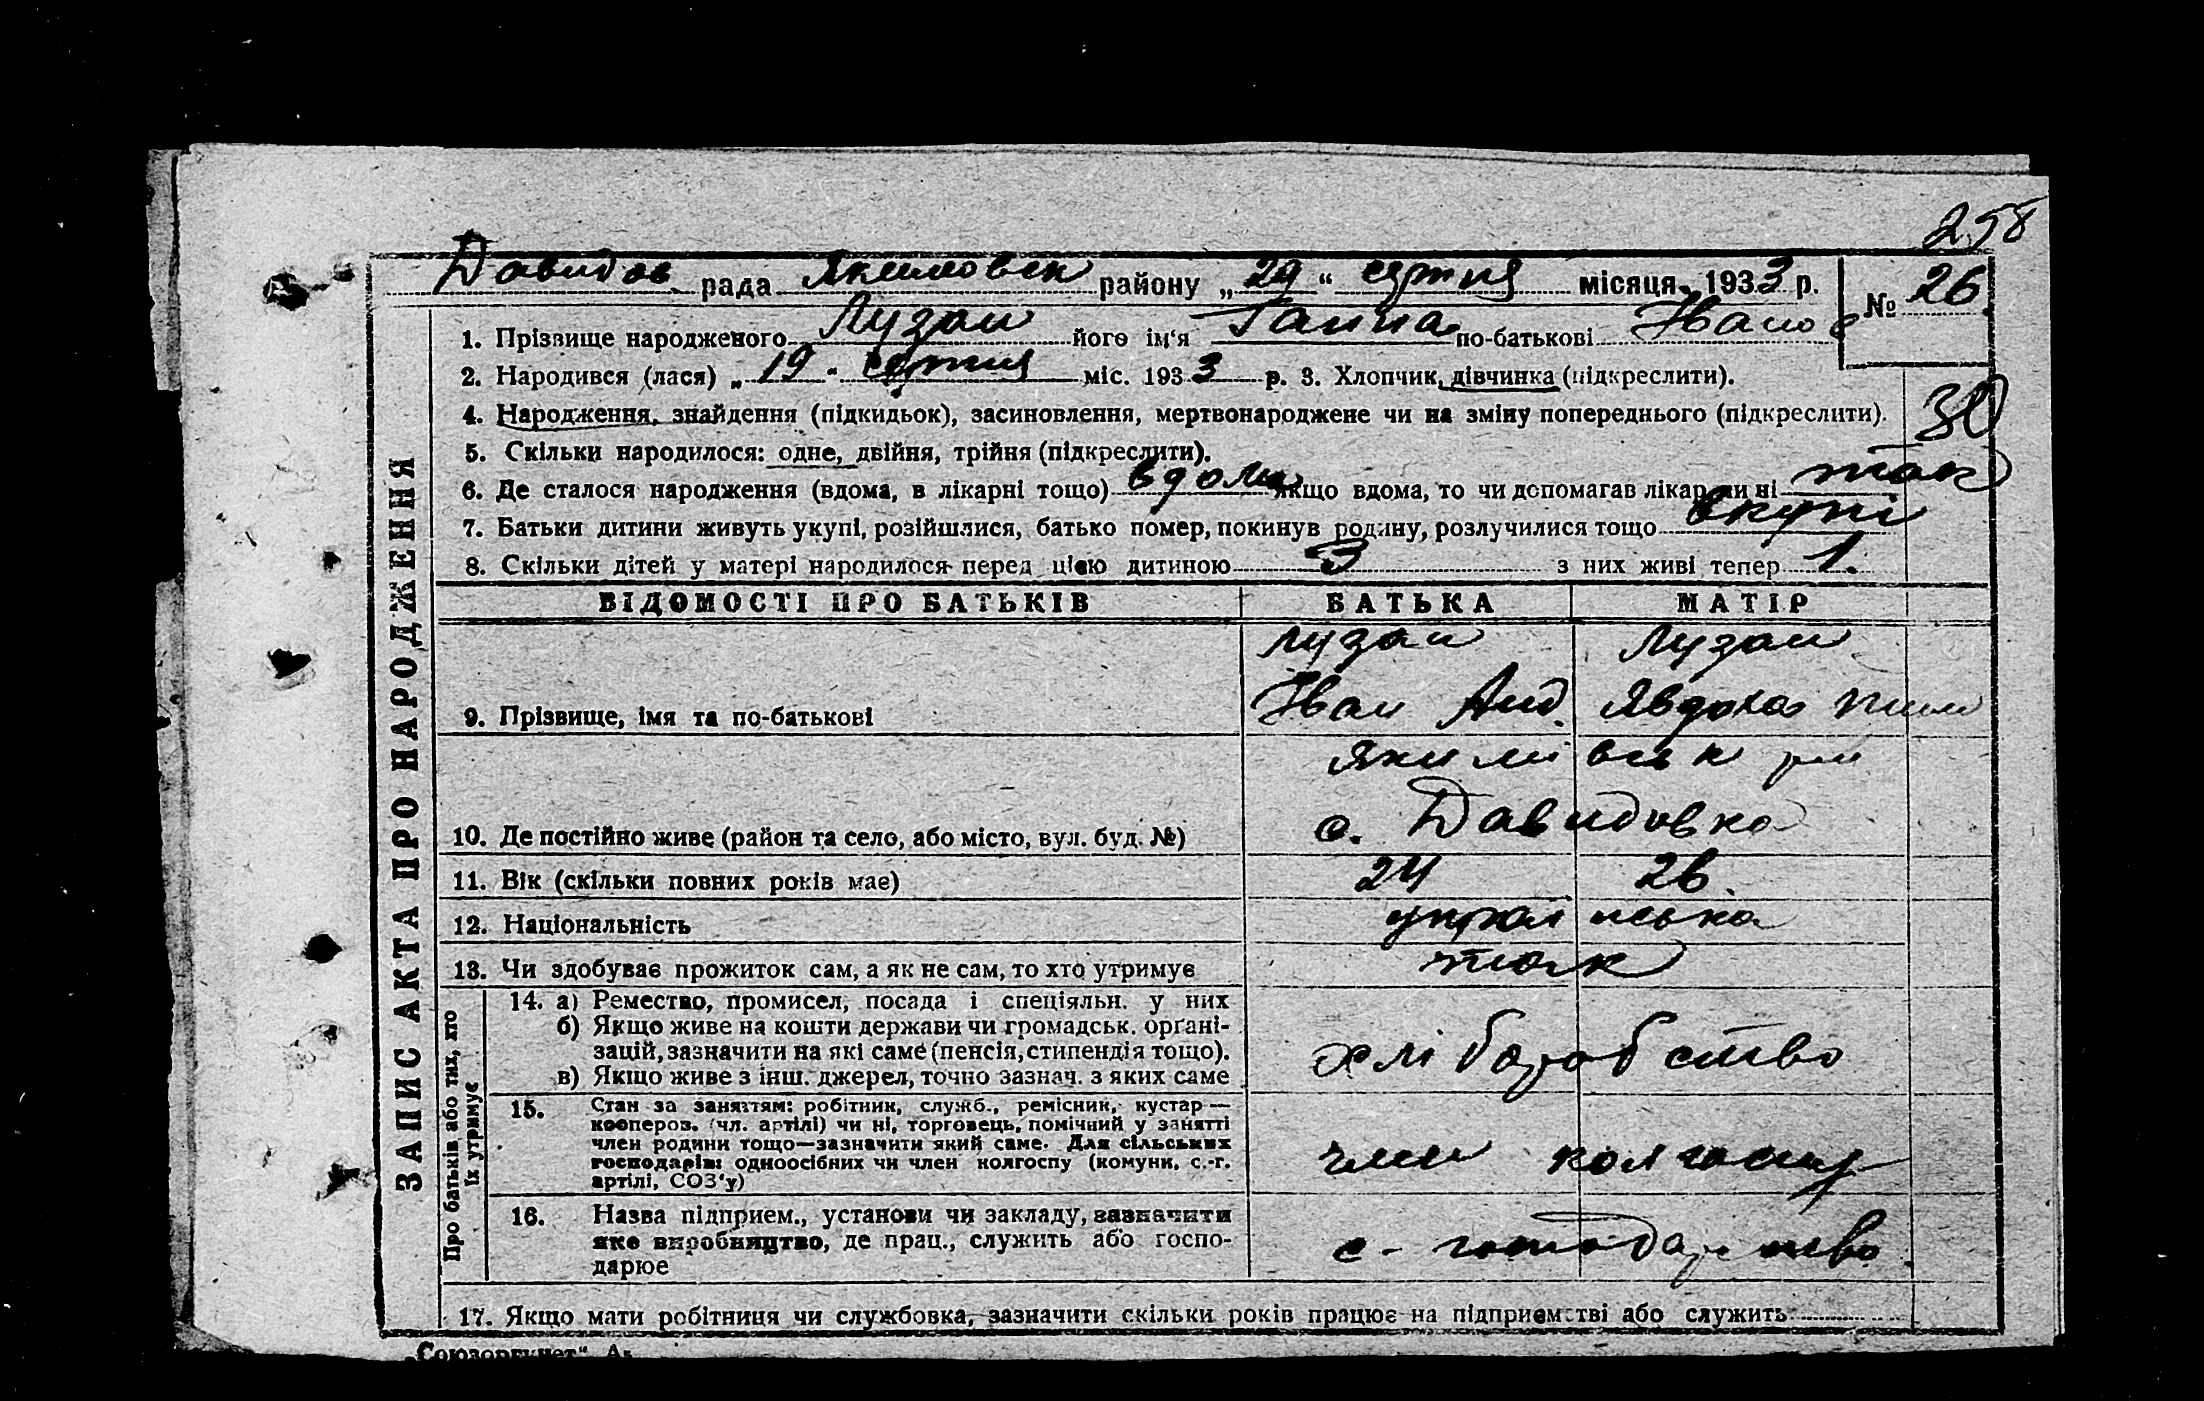 258
Давидов рада Якимовск району „29“ серпня місяця 1933 р. № 26
1. Прізвище народженого Лузан його ім'я Ганна по-батькові Івано
2. Народився (лася) „19“ серпня міс. 1933 р. 3. Хлопчик, дівчинка (підкреслити).
4. Народження, знайдення (підкидьок), засиновлення, мертвонароджене чи на зміну попереднього (підкреслити). 30
5. Скільки народилося: одне, двійня, трійня (підкреслити).
6. Де сталося народження (вдома, в лікарні тощо) вдома якщо вдома, то чи допомагав лікар чи ні так
7. Батьки дитини живуть укупі, розійшлися, батько помер, покинув родину, розлучилися тощо вкупі
8. Скільки дітей у матері народилося перед цією дитиною 3 з них живі тепер 1.
ЗАПИС АКТА ПРО НАРОДЖЕННЯ
ВІДОМОСТІ ПРО БАТЬКІВ БАТЬКА МАТІР
Лузан Лузан
9. Прізвище, імя та по-батькові Іван Анд. Явдоха
Якимівськ рай
10. Де постійно живе (район та село, або місто, вул. буд. №) с. Давидовка
11. Вік (скільки повних років має) 24 26.
12. Національність українська
13. Чи здобуває прожиток сам, а як не сам, то хто утримує так
Про батьків або тих, хто їх утримує
14. а) Ремество, промисел, посада і спеціяльн. у них
б) Якщо живе на кошти держави чи громадськ. органі-
зацій, зазначити на які саме (пенсія, стипендія тощо).
в) Якщо живе з інш. джерел, точно зазнач. з яких саме
хліборобство
15. Стан за заняттям: робітник, служб., ремісник, кустар —
коoперов. (чл. артілі) чи ні, торговець, помічний у занятті
член родини тощо—зазначити який саме. Для сільських
господарів: одноосібних чи член колгоспу (комуни, с.-г.
артілі, СОЗ'у)
член колгоспу
16. Назва підприєм., установи чи закладу, зазначити
яке виробництво, де прац., служить або госпо-
дарює
с-господарство
17. Якщо мати робітниця чи службовка, зазначити скільки років працює на підприємстві або служить
„Союзоргучет“